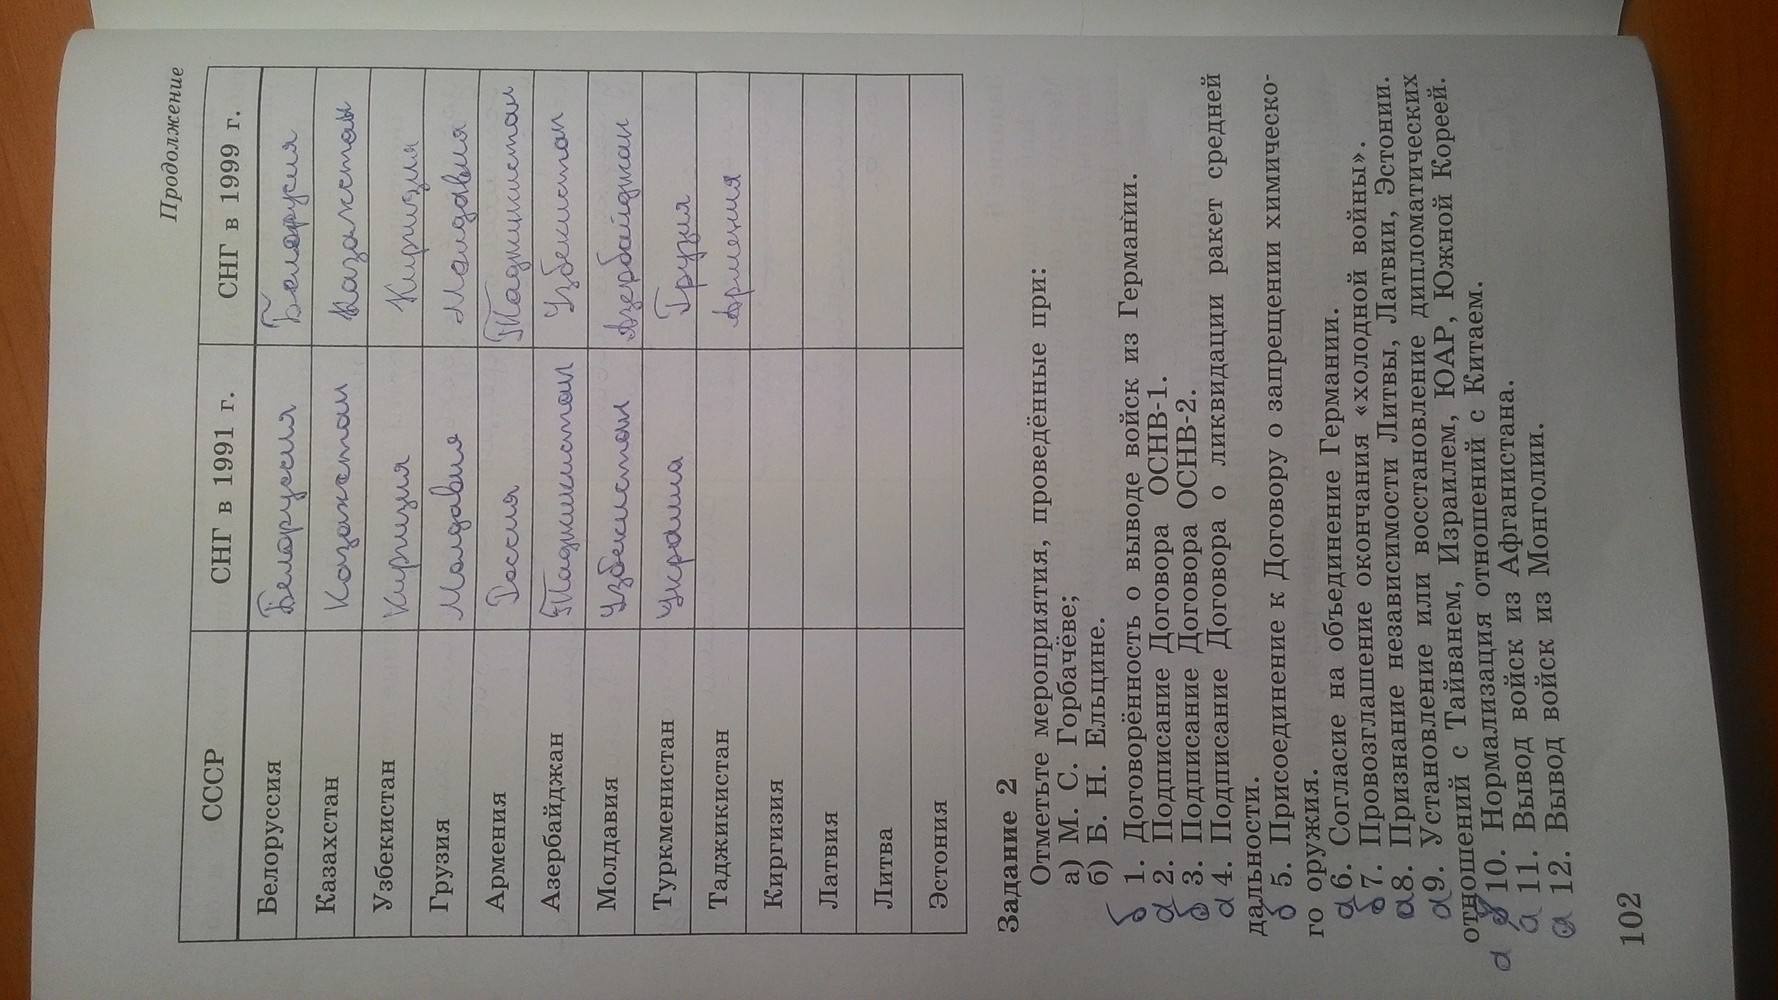 Продолжение
СССР СНГ в 1991 г. СНГ в 1999 г.
Белоруссия Белоруссия Белорусия
Казахстан Казахстан Казахстан
Узбекистан Киргизия Киргизия
Грузия Молдавия Молдавия
Армения Россия Таджикистан
Азербайджан Таджикистан Узбекистан
Молдавия Узбекистан Азербайджан
Туркменистан Украина Грузия
Таджикистан Армения
Киргизия
Латвия
Литва
Эстония
Задание 2
Отметьте мероприятия, проведённые при:
а) М. С. Горбачёве;
б) Б. Н. Ельцине.
б 1. Договорённость о выводе войск из Германии.
а 2. Подписание Договора ОСНВ-1.
б 3. Подписание Договора ОСНВ-2.
а 4. Подписание Договора о ликвидации ракет средней
дальности.
б 5. Присоединение к Договору о запрещении химическо-
го оружия.
а 6. Согласие на объединение Германии.
б 7. Провозглашение окончания «холодной войны».
а 8. Признание независимости Литвы, Латвии, Эстонии.
а 9. Установление или восстановление дипломатических
отношений с Тайванем, Израилем, ЮАР, Южной Кореей.
а 10. Нормализация отношений с Китаем.
а 11. Вывод войск из Афганистана.
а 12. Вывод войск из Монголии.
102